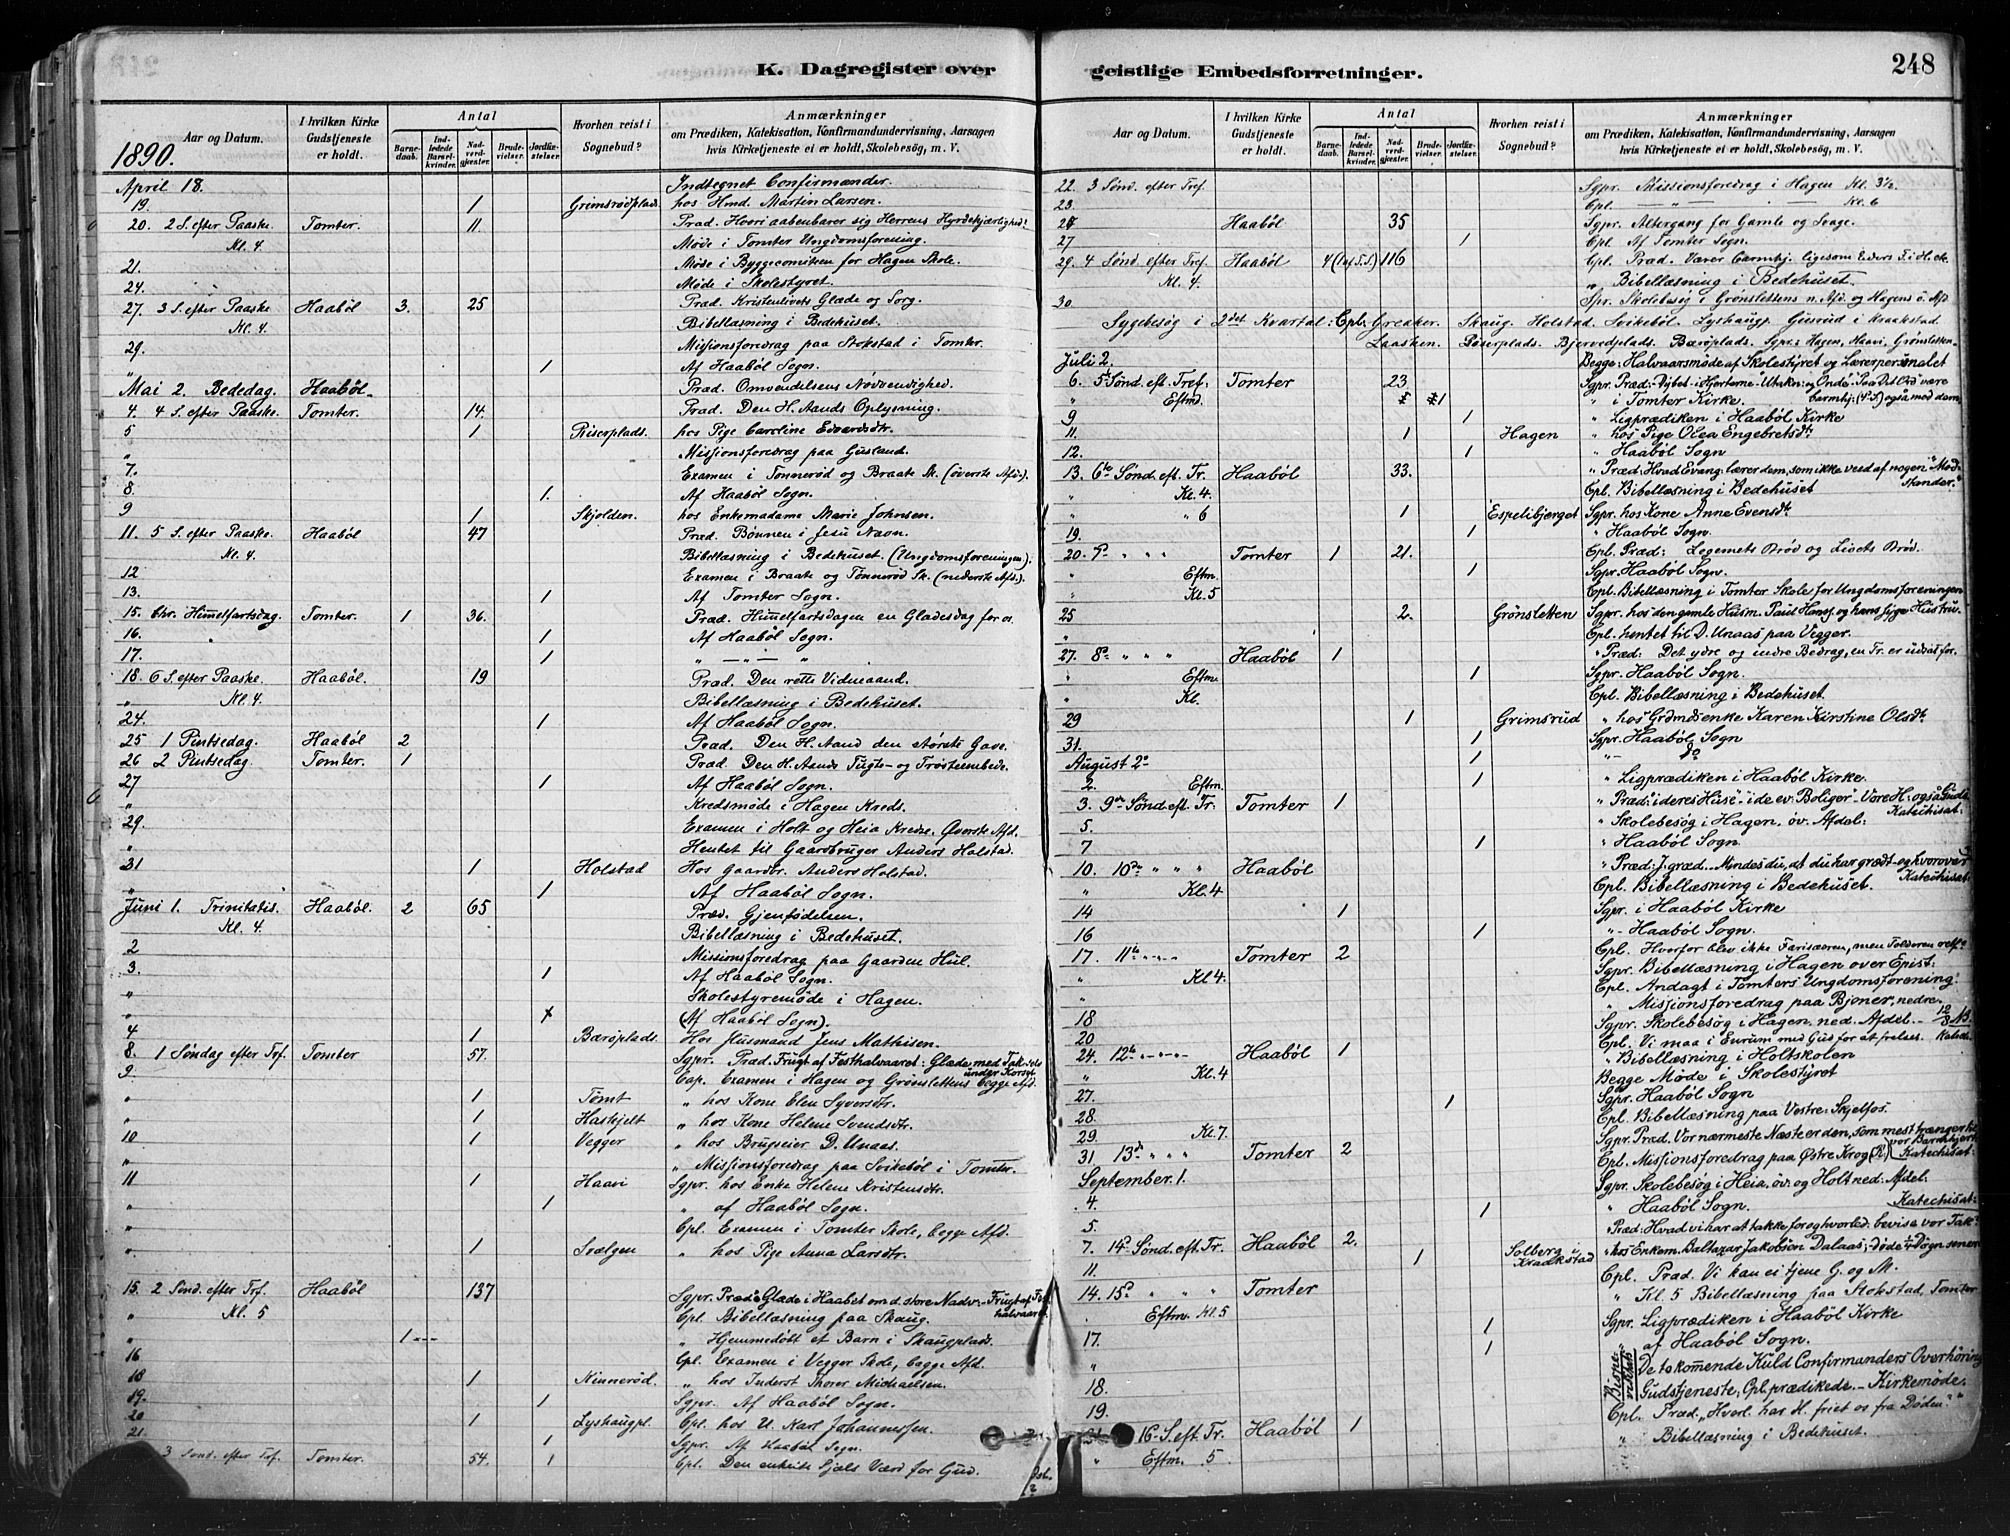 248
K. Dagregister over geistlige Embedsforretninger.
Aar og Datum. I hvilken Kirke Gudstjeneste er holdt. Antal Barnedaab. Indledede Barselkvinder. Nadverdgjester. Brudevielser. Jordfæstelser. Hvorhen reist i Sognebud? Anmærkninger om Prædiken, Katekisation, Konfirmandundervisning, Aarsagen hvis Kirketjeneste ei er holdt, Skolebesøg, m. V.
1890.
April 18. Indtegnet Confirmander.
19. 1 Grimsrødplads. hos Hmd. Martin Larsen.
20. 2 S. efter Paaske Tomter. 11 Præd. Hvori aabenbarer sig Herrens Hyrdekjærlighed?
Kl. 4. Møde i Tomter Ungdomsforening.
21. Møde i Byggecomiteen for Hagen Skole.
24. Møde i Skolestyret.
27. 3 S. efter Paaske Haabøl 3. 25 Præd. Kristenlivets Glæde og Sorg.
Kl. 4. Bibellæsning i Bedehuset.
29. Missionsforedrag paa Stokstad i Tomter.
" 1 Af Haabøl Sogn.
Mai 2. Bededag. Haabøl. Præd. Omvendelsens Nødvendighed.
4. 4 S. efter Paaske. Tomter. 14. Præd. Den H. Aands Oplysning.
5 1 Riserplads. hos Pige Caroline Edvardsdtr.
" Missionsforedrag paa Gusland.
7. Examen i Tønnerød og Braate Sk. (øverste Afd.).
8. 1. Af Haabøl Sogn.
9 1 Skjolden. hos Enkemadame Marie Johnsen.
11. 5 S. efter Paaske. Haabøl 47 Præd. Bønnen i Jesu Navn.
Kl. 4. Bibellæsning i Bedehuset. (Ungdomsforeningen).
12 Examen i Braate og Tønnerød Sk. (nederste Afd.).
13. 1 Af Tomter Sogn.
15. Chr. Himmelfartsdag. Tomter. 1 36. Præd. Himmelfartsdagen en Glædesdag for os.
16. 1 Af Haabøl Sogn.
17. 1 " — " — "
18. 6 S. efter Paaske. Haabøl. 19 Præd. Den rette Vidneaand.
" Kl. 4. Bibellæsning i Bedehuset.
24. 1 Af Haabøl Sogn.
25 1 Pintsedag. Haabøl 2 Præd. Den H. Aand den største Gave.
26 2 Pintsedag Tomter. 1 Præd. Den H. Aands Tugte- og Trøsteembede.
27 1 Af Haabøl Sogn.
" Kredsmøde i Hagen Kreds.
29. Examen i Holt og Heia Kredse. Øverste Afd.
" Hentet til Gaardbruger Anders Holstad.
31 1 Holstad Hos Gaardbr. Anders Holstad.
" 1 Af Haabøl Sogn.
Juni 1. Trinitatis. Haabøl. 2 65 Præd. Gjenfødelsen.
Kl. 4. Bibellæsning i Bedehuset.
2 Missionsforedrag paa Gaarden Hul.
3. 1 Af Haabøl Sogn.
" Skolestyremøde i Hagen.
" (Af Haabøl Sogn).
4 1 Bærøplads. Hos Husmand Jens Mathisen.
8. 1 Søndag efter Trf. Tomter 57. Sgpr. Præd. Frugt af Festhalvaaret: Glæde med Tak under Korset
9. Cap. Examen i Hagen og Grønslettens begge Afd.
" 1 Tomt " hos Kone Elen Syversdtr.
" 1 Haskjelt " hos Kone Helene Svendsdtr.
10 1 Vegger " hos Brugseier D. Unaas.
" " Missionsforedrag paa Svikebøl i Tomter.
11 1 Haavi Sgpr. hos Enke Helene Kristensdtr.
" 1 " af Haabøl Sogn.
" Cpl. Examen i Tomter Skole, begge Afd.
" 1 Svælgen " hos Pige Anna Larsdtr.
15. 2 Sønd. efter Trf. Haabøl 137 Sgpr. Præd: Glæde i Haabet om d. store Nadv. - Frugt af Festhalvaaret.
" Kl. 5 Cpl. Bibellæsning paa Skaug.
" 1 --- " Hjemmedøbt et Barn i Skaugplads.
16 Cpl. Examen i Vegger Skole, begge Afd.
18 1 Kinnerød. " hos Inderst Thorer Michaelsen.
19. 1 Sgpr. Af Haabøl Sogn.
20 1 Lyshaugpl. Cpl. hos U. Karl Johannessen.
21. 1 Sgpr. Af Haabøl Sogn.
3 Sønd. efter Trf. Tomter. 54. 1 Cpl. Den enkelte Sjæls Værd for Gud.
Aar og Datum. I hvilken Kirke Gudstjeneste er holdt. Antal Barnedaab. Indledede Barselkvinder. Nadverdgjester. Brudevielser. Jordfæstelser. Hvorhen reist i Sognebud? Anmærkninger om Prædiken, Katekisation, Konfirmandundervisning, Aarsagen hvis Kirketjeneste ei er holdt, Skolebesøg, m. V.
22. 3 Sønd. efter Tref. Sgpr. Missionsforedrag i Hagen Kl. 3½.
23. Cpl. — " — Kl. 6
Haabøl 35 Sgpr. Altergang for Gamle og Svage.
27 1 Cpl. Af Tomter Sogn.
29. 4 Sønd. efter Tref. Haabøl 116 Cpl. Præd. Værer barmhj. ligesom Eders F.
Kl. 4. " Bibellæsning i Bedehuset.
30 Spr. Skolebesøg i Grønslettens n. Afd. og Hagens ö. Afd.
Sygebesøg i 2det Kvartal: Cpl. Greaker. Skaug. Holstad. Svikebøl. Lyshaugpl. Gusrud i Kraakstad.
Laasken. Riserplads. Bjerverdplads. Bærøplads. Sgpr: Hagen, Haavi, Grønsletten.
Juli 2. Begge: Halvaarsmøde af Skolestyret og Lærerpersonalet
6. 5 Sønd. eft. Tref. Tomter 23
" Eftmd. 1 " i Tomter Kirke.
9 1 " Ligprædiken i Haabøl Kirke
11. 1 Hagen " hos Pige Olea Engebretsdtr
12. 1 " Haabøl Sogn
13. 6te Sønd. eft. Tr. Haabøl 33. " Præd: Hvad Evang. lærer dem, som ikke veed af nogen Modstander.
" Kl. 4. Cpl. Bibellæsning i Bedehuset
" " 6 1 Espelibjerget Sgpr. hos Kone Anne Evensdtr
19. 1 " Haabøl Sogn.
20. 7de " " " Tomter 1 21. Cpl. Præd: Legemets Brød og Livets Brød.
" Eftm. 1 Sgpr. Haabøl Sogn.
" Kl. 5 Cpl. Bibellæsning i Tomter Skole for Ungdomsforeningen
25 2. Grønsletten Sgpr. hos den gamle Husm. Paul Hans. og hans syge Hustru.
" Cpl. hentet til D. Unaas paa Vegger.
27. 8de " " " Haabøl 1 " Præd: Det ydre og indre Bedrag, en Tr. er udsat for.
" Eftm. 1 Sgpr. Haabøl Sogn.
" Kl. Cpl. Bibellæsning i Bedehuset.
29 1 Grimsrud " hos Grdmdsenke Karen Kirstine Olsdtr
31. 1 Sgpr. Haabøl Sogn
August 2. 1 " — Do
2. Eftm. 1 " Ligprædiken i Haabøl Kirke.
3. 9de Sønd. eft. Tr. Tomter 1 " Præd: "i deres Huse" - i de ev. Boliger - Katechisat:
5. " Skolebesøg i Hagen, öv. Afdel:
7 1 " Haabøl Sogn.
10. 10de " " " Haabøl " Præd: J. græd. Mindes du, at du har grædt og hvorover Katechisat:
" Kl. 4 Cpl. Bibellæsning i Bedehuset.
14 1 Sgpr. i Haabøl Kirke
16 1 " - Haabøl Sogn.
17. 11te " - " - Tomter 2 Cpl. Hvorfor blev ikke Farisæeren, men Tolderen retf.
" Kl. 4. Sgpr. Bibellæsning i Hagen over Epist:
" Cpl. Andagt i Tomters Ungdomsforening.
18 " Missionsforedrag paa Bjoner, nedre.
20 Sgpr. Skolebesøg i Hagen, ned. Afdel.
24. 12te - " - " - Haabøl 1 Cpl. Vi maa i Eurum med Gus for at frelses.
" Kl. 4 " Bibellæsning i Holtskolen
27. Begge Møde i Skolestyret
28. 1 Sgpr. Haabøl Sogn
29. Kl. 7. Cpl. Bibellæsning paa Vestre Skjelfos.
31 13de " " " Tomter 2 Sgpr. Præd. Vor nærmeste Næste er den, som mest trænger til vor Barmhjert. Katechisat:
September 1. Cpl. Missionsforedrag paa Østre Krog (K)
4. 1 Sgpr. Skolebesøg i Heia, öv. og Holt ned. Afdel:
5. " Haabøl Sogn. Katechisat:
7. 14de Sønd. eft. Tr. Haabøl 2. " Præd: Hvad vi har at takke for og hvorled. bevise vor Tak.
11. 1 Solberg i Kraakstad " hos Enkem. Baltazar Jakobson Dalaas; døde ½ Døgn senere
14. 15de " " Tomter Cpl. Præd. Vi kan ei tjene G. og M.
" Eftm. Kl. 5 " Kl. 5 Bibellæsning paa Stokstad, Tomter
17. 1 Sgpr. Ligprædiken i Haabøl Kirke
" 1 af Haabøl Sogn.
18. Bispevisitats De to kommende Kuld Confirmanders Overhøring
19. Gudstjeneste, Cpl. prædikede. - Kirkemøde.
21 16. S. eft. Tr. Haabøl 1 Cpl. Præd: "Hverl. har H. friet os fra Døden?"
" Eftm. 5 " Bibellæsning i Bedehuset.